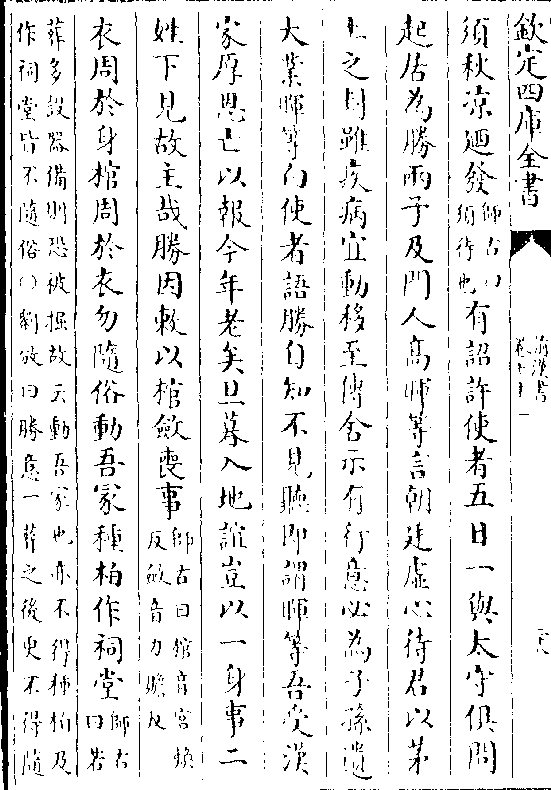 欽定四庫全書
前漢書
卷七十二
須秋涼廼發師古曰須待也有詔許使者五日一與太守俱問
起居為勝兩子及門人高暉等言朝廷虛心待君以茅
土之封雖疾病宜動移至傳舍示有行意必為子孫遺
大業暉等白使者語勝自知不見聽即謂暉等吾受漢
家厚恩亡以報今年老矣旦暮入地誼豈以一身事二
姓下見故主哉勝因敕以棺斂喪事師古曰棺音宮煥反斂音力贍反
衣周於身棺周於衣勿隨俗動吾冢種柏作祠堂師古曰若
葬多設器備則恐被掘故云動吾冢也亦不得種柏及
作祠堂皆不隨俗○劉攽曰勝意一葬之後更不得隨